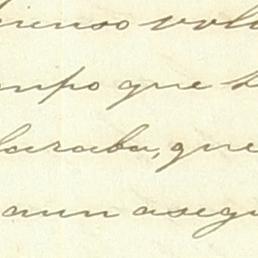 pienso volv
mpo que s
laraba, que
aun asegu